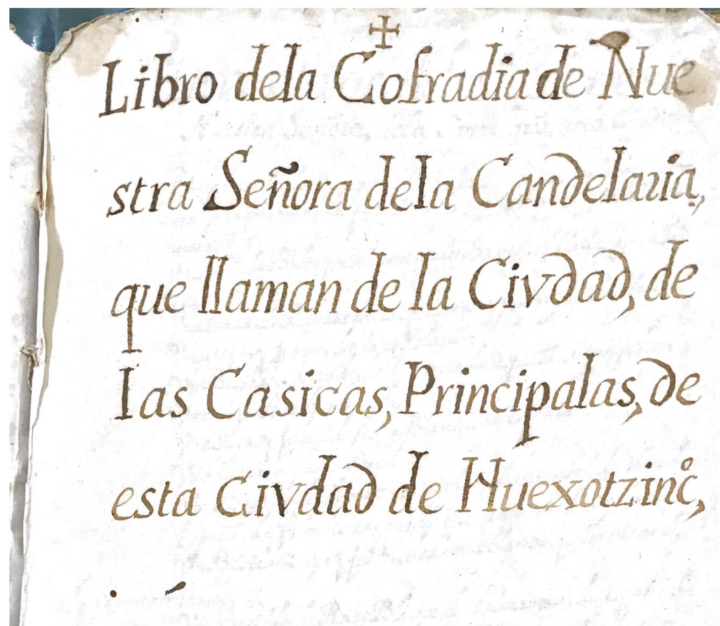 Libro dela Cofradia de Nue
stra Señora dela Candelaria,
que llaman de la Civdad, de
las Casicas, Principalas, de
esta Civdad de Huexotzinc̊,